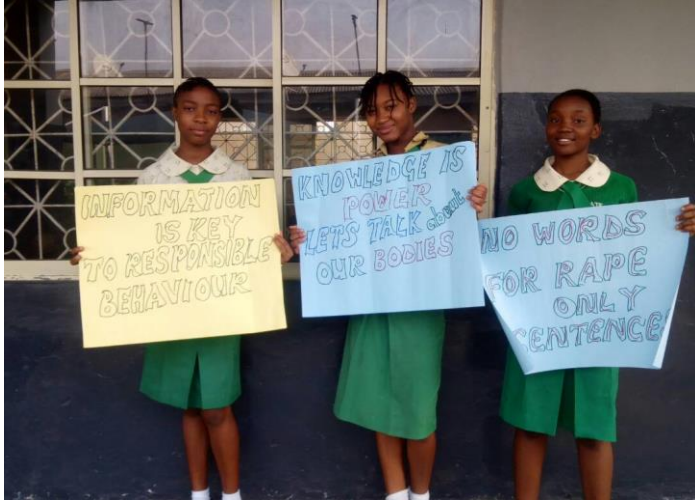 INFORMATION
IS KEY
TO RESPONSIBLE
BEHAVIOUR
KNOWLEDGE IS
POWER
LETS TALK about
OUR BODIES
NO WORDS
FOR RAPE
ONLY
SENTENCE